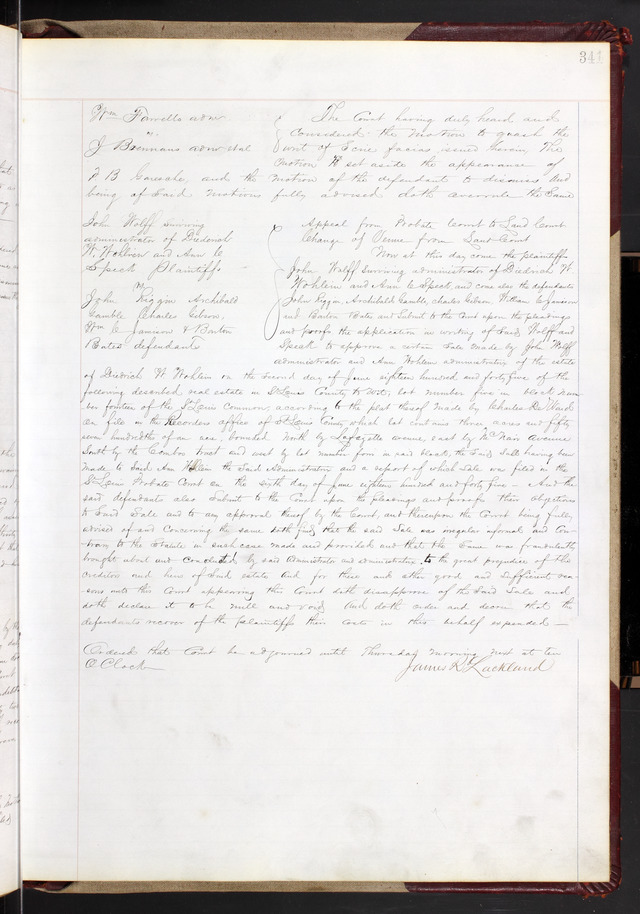 341
Wm Farrells admr
vs
J Brennans admr et al
The Court having duly heard and
considered the motion to quash the
writ of Scire facias issued herein, The
motion to set aside the appearance of
J B Gouache, and the motion of the defendants to dismiss and
being of said motions fully advised doth overrule the Same
John Wolff Surviving
administrator of Diedrich
W. Wohlien and Ann C
Speck Plaintiffs
vs
John Riggin Archibald
Gamble Charles Gibson,
Wm C Jamison & Barton
Bates defendants
Appeal from Probate Court to Land Court
Change of Venue from Land Court
Now at this day come the plaintiffs
John Wolff Surviving administrator of Diedrich W
Wohlein and Ann C Speck, and come also the defendants
John Riggin, Archibald Gamble, Charles Gibson, William C Jamison
and Barton Bates and Submit to the Court upon the pleadings
and proofs the application in writing of Said Wolff and
Speck to approve a certain Sale made by John Wolff
administrator and Ann Wohlein administratrix of the estate
of Diedrich W Wohlein on the Second day of June eighteen hundred and forty five of the
following described real estate in St Louis County to wit, lot number five in block num
ber fourteen of the St Louis Common, according to the plat thereof made by Charles De Ward
on file in the Recorders office of St Louis County which lot contains three acres and fifty
seven hundredths of an acre, bounded North by Lafayette avenue, east by McNair Avenue
South by the Common and west by lot number four in said block, the Said Sale having been
made to Said Ann Wohlein the Said Administratrix and a report of which Sale was filed in the
St Louis Probate Court on the sixth day of June eighteen hundred and forty five - And the
said defendants also Submit to the Court upon the pleadings and proofs their objections
to Said Sale and to any approval thereof by the Court, and thereupon the Court being fully
advised of and Concerning the same doth find that the said Sale was irregular informal and Con-
trary to the Statute in such case made and provided and that the Same was fraudulently
brought about and conducted by said Administrator and administratrix, to the great prejudice of the
creditors and heirs of Said estate and for these and other good and Sufficient rea
sons unto this Court appearing this Court doth disapprove of the Said Sale and
doth declare it to be null and void And doth order and decree that the
defendants recover of the plaintiffs their costs in this behalf expended —
Ordered that Court be adjourned until Thursday morning next at ten
O Clock
James R Lackland